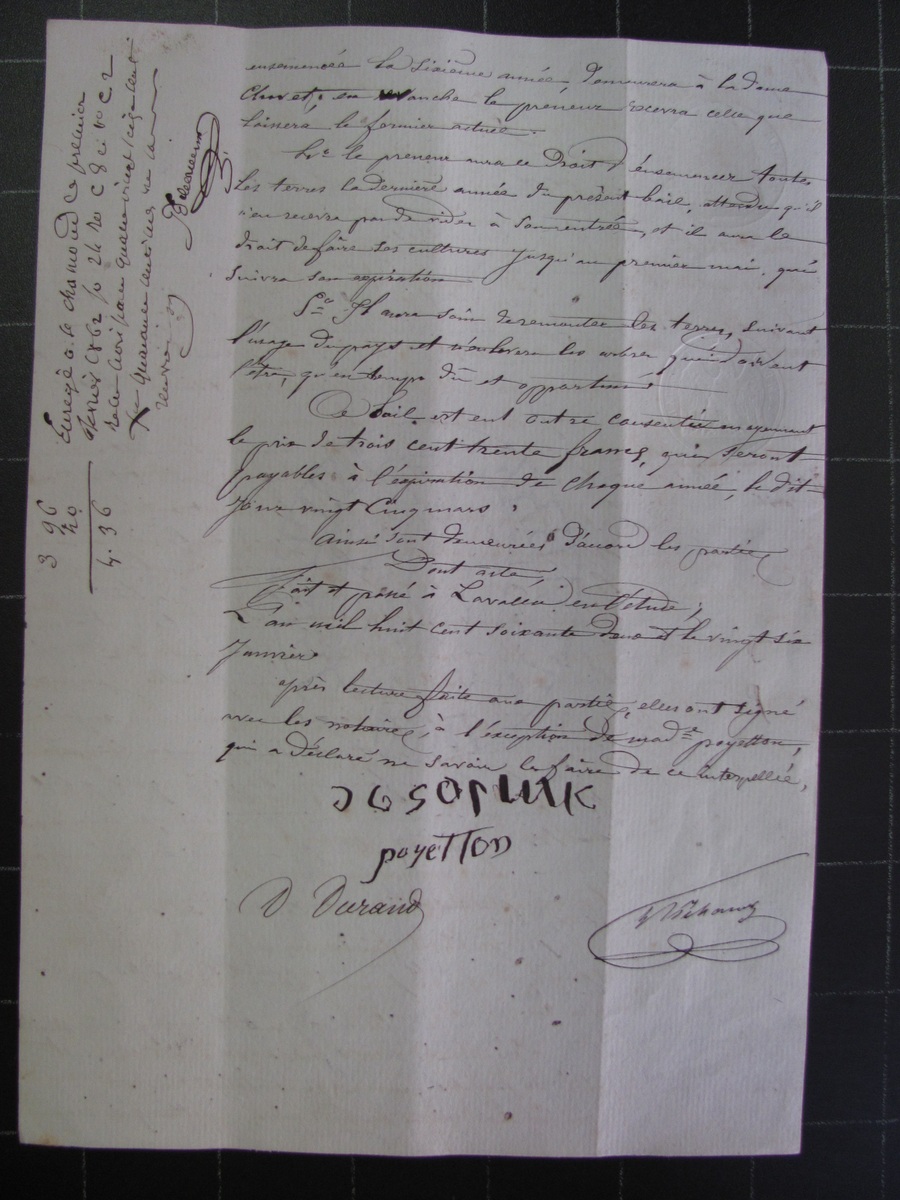 ensemencée la sixième année, demeurera à la dame
Chovet, en revanche le preneur recevra celle que
laissera le fermier actuel.
4° le preneur aura le Droit d'ensemencer toutes
les terres la dernière année du présent bail, attendu qu'il
n'en recevra pas de vides à son entrée, et il aura le
droit de faire ses cultures jusqu'au premier mai, qui
suivra son expiration
5° Il aura soin de remonter les terres, suivant
l'usage du pays et n'enlevera les arbres qui doivent
l'être, qu'en temps dû et opportun.
Ce bail est en outre consenti moyennant
le prix de trois cent trente francs, qui seront
payables à l'expiration de chaque année, le dit
jour vingt cinq mars.
Ainsi sont demeurées d'accord les parties
Dont acte,
fait et passé à Lavalla en l'étude,
L'an mil huit cent soixante deux et le vingt six
Janvier
après lecture faite aux parties, elles ont signé
avec les notaires, à l'exception de mad.e poyetton,
qui a déclaré ne savoir le faire de ce interpellée,
poyetton
D Durand
Enregé à St chamond le premier
février 1862 f° 24 R°
quarante centimes
3 96
40
4. 36